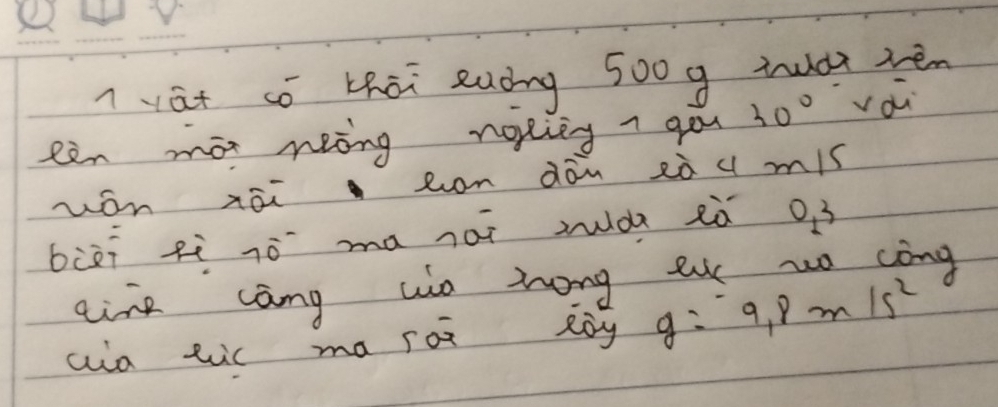 1 vật có khối lượng 500 g trượt trên
lên một mặt phẳng nghiêng 1 góc 30° với
vận tốc ban đầu là 4 m/s
biết hệ số ma sát trượt là 0,3
tính công của trọng lực và công
của lực ma sát lấy g = 9,8 m/s²